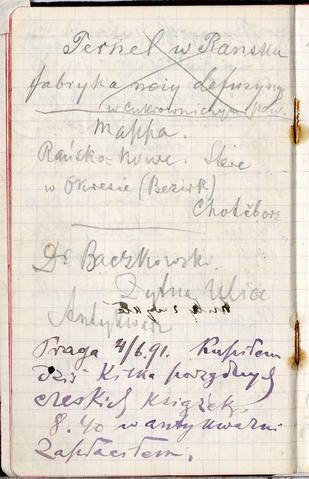 Pernel w Rańsku
fabryka noży defuzyny
w cukrowniczym pow.
Mappa.
Rańsko-Nowe. Stere
w Okresie (Bezirk)
Chotěborz
Dr Baczkowski.
Żytna Ulica
Antykwarz
Praga 4/6.91. Kupiłem
dziś kilka porządnych
czeskich książek,
8.40 w antykwarni
Zapłaciłem.